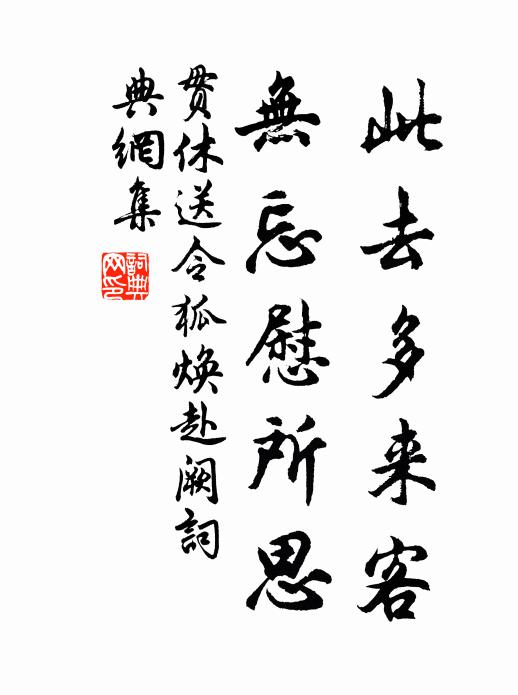 此去多来客
無忘慰所思
贯休送令狐焕赴阙詞
典網集
詞典网印